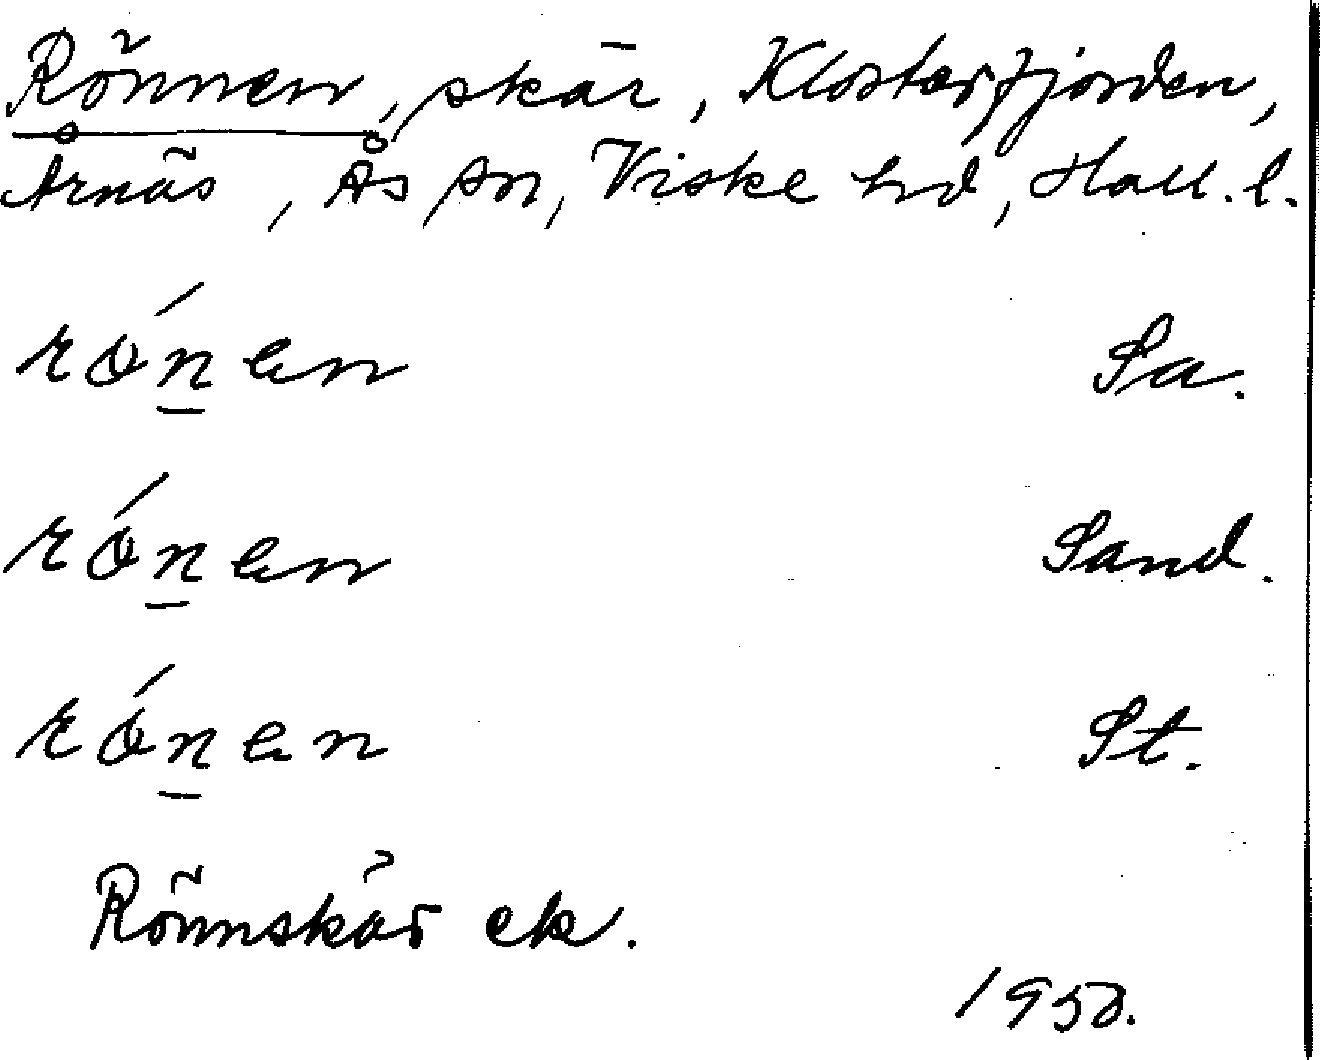 Rönnen, skär, Klosterfjorden,
Årnäs, Ås sn, Viske hd, Hall. l.
rǿnen Sa.
rǿnen Sand.
rǿnen St.
Rönnskär ek.
1950.